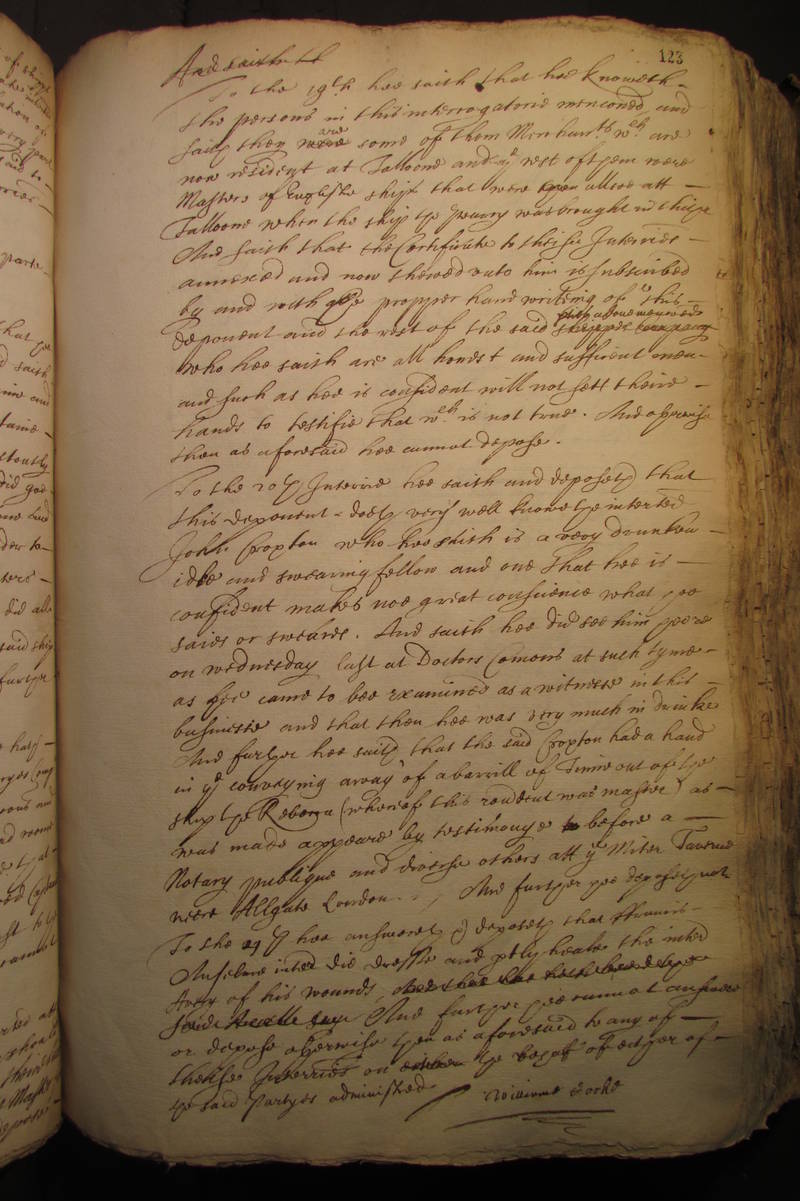 123
And saith th
To the 19th hee saith that hee knoweth
the persons in this interrogatorie menconed and
saith they are some of them Merchants wch are
now resident at Talloone and ye rest of them were
Masters of English shipps that were then alsoe att
Talloone when the ship the was brought in thither
And saith that the Certificate to theise Interries
annexed and now shewed unto him is subscribed
by and with the propper hand writing of this
deponent and the rest of the said
who hee saith are all honest and sufficient men
and such as hee is confident will not sett theire
hands to testifie that wch is not true. And otherwise
then as aforesaid hee cannot depose.
To the 20th Interrie hee saith and deposeth that
this deponent doeth very well knowe the interted
John Croxton who hee saith is a very drunken
idle and swearing fellow and one that hee is
confident makes noe great conscience what hee
saies or sweares. And saith hee did see him heere
on wednesday last at Doctors Comons at such tyme
as hee came to bee examined as a witnesse in this
businesse and that then hee was very much in drinke
And further hee saith that the said Croxton had a hand
in ye conveying away of a barrill of Tinne out of the
ship the Rebecca (whereof this rendent was master) as
was made appeare by testimonye before a
Notary publique and diverse others att ye Miter Taverne
neere Allgate London. And further hee deposeth not
To the hee answereth & deposeth that ffrancis
Anselme interted did dresse and ptly heale the interted
of his wounds,
And further hee cannot answere
or depose otherwise then as aforesaid to any of
theise Interries on the behalf of either of
the said partyes administred